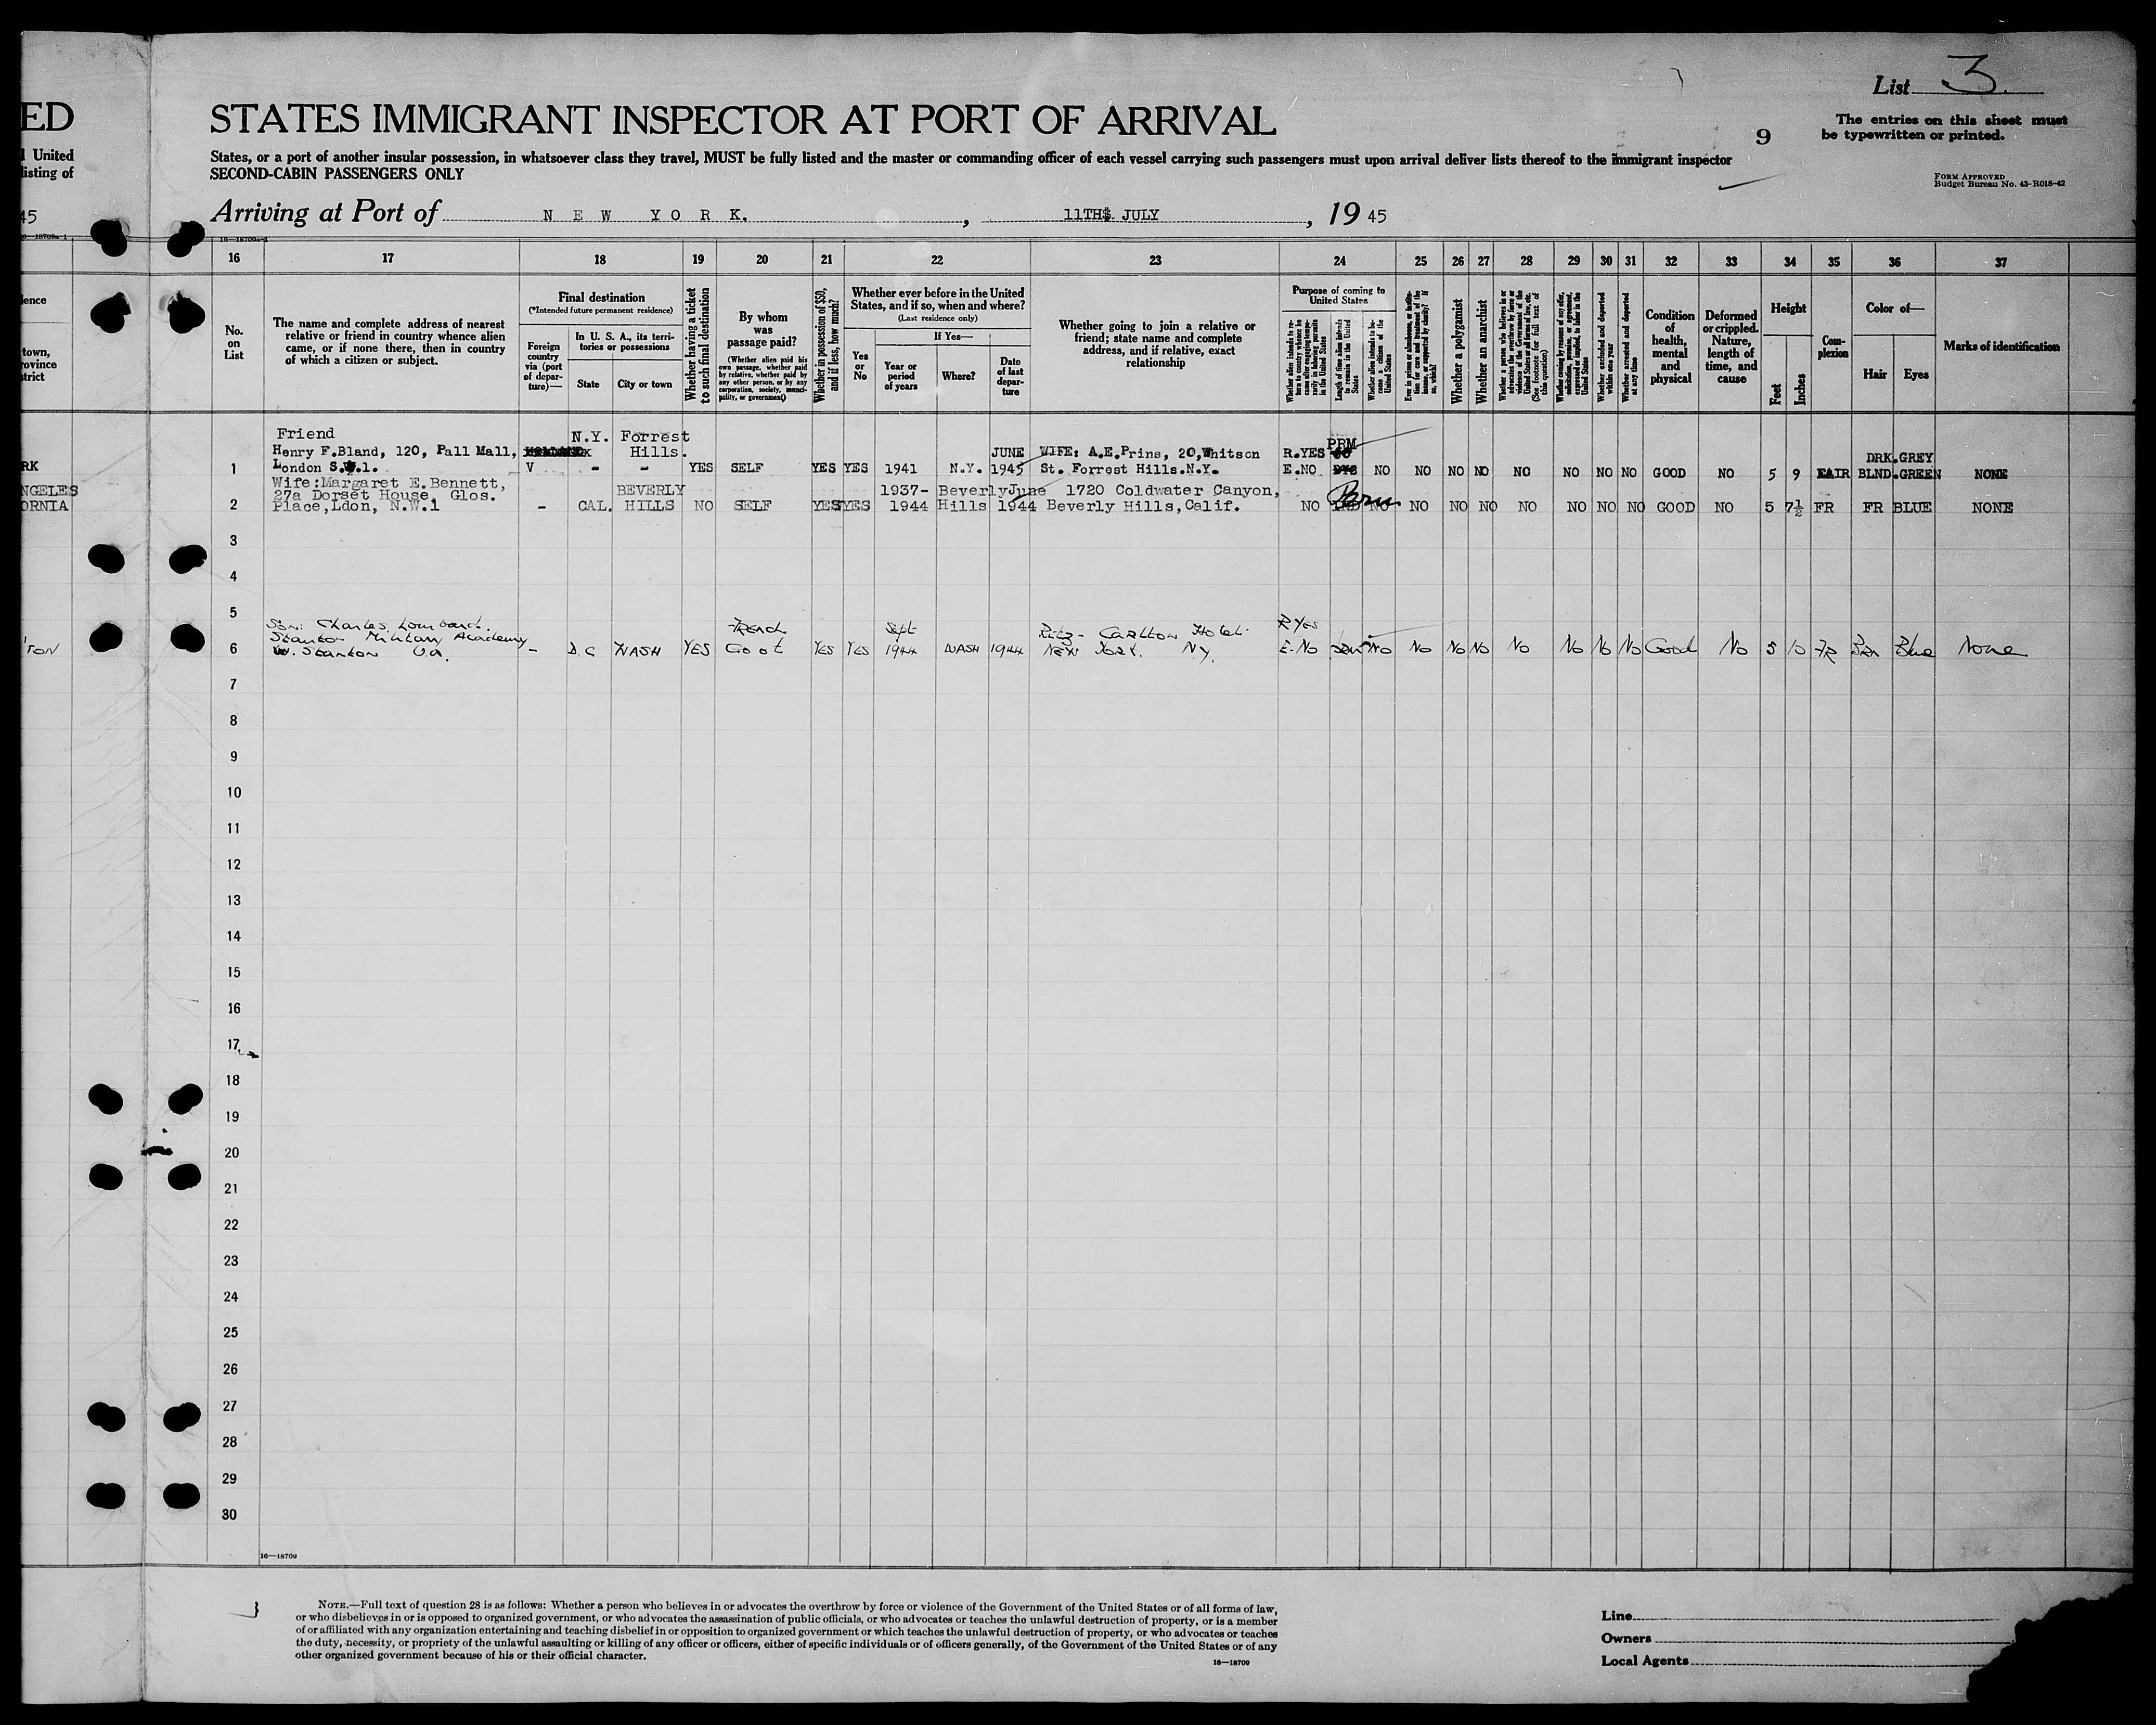 List 3.
ED
STATES IMMIGRANT INSPECTOR AT PORT OF ARRIVAL
9
The entries on this sheet must
be typewritten or printed.
United
listing of
States, or a port of another insular possession, in whatsoever class they travel, MUST be fully listed and the master or commanding officer of each vessel carrying such passengers must upon arrival deliver lists thereof to the immigrant inspector
SECOND-CABIN PASSENGERS ONLY
FORM APPROVED
Budget Bureau No. 43-R018-42
45
Arriving at Port of NEW YORK. , 11TH JULY , 19 45
16—18709a-1
16 17 18 19 20 21 22 23 24 25 26 27 28 29 30 31 32 33 34 35 36 37
No. on List
The name and complete address of nearest
relative or friend in country whence alien
came, or if none there, then in country
of which a citizen or subject.
Final destination
(*Intended future permanent residence)
Foreign country via (port of departure)—
In U. S. A., its territories or possessions
State
City or town
Whether having a ticket to such final destination
By whom was passage paid?
(Whether alien paid his own passage, whether paid by relative, whether paid by any other person, or by any corporation, society, municipality, or government)
Whether in possession of $50, and if less, how much?
Whether ever before in the United
States, and if so, when and where?
(Last residence only)
Yes or No
If Yes—
Year or period of years
Where?
Date of last departure
Whether going to join a relative or
friend; state name and complete
address, and if relative, exact
relationship
Purpose of coming to
United States
Whether alien intends to return to country whence he came after engaging temporarily in laboring pursuits in the United States
Length of time alien intends to remain in the United States
Whether alien intends to become a citizen of the United States
Ever in prison or almshouse, or institution for care and treatment of the insane, or supported by charity? If so, which?
Whether a polygamist
Whether an anarchist
Whether a person who believes in or advocates the overthrow by force or violence of the Government of the United States or all forms of law, etc. (See footnote for full text of this question)
Whether coming by reason of any offer, solicitation, promise, or agreement, expressed or implied, to labor in the United States
Whether excluded and deported within one year
Whether arrested and deported at any time
Condition of health, mental and physical
Deformed or crippled. Nature, length of time, and cause
Height
Feet
Inches
Complexion
Color of—
Hair
Eyes
Marks of identification
Friend N.Y. Forrest PRM
Henry F.Bland, 120, Pall Mall, Hills. JUNE WIFE: A.E.Prins, 20,Whitson R.YES DRK.GREY
RK 1 London S.W.1. V - - YES SELF YES YES 1941 N.Y. 1945 St. Forrest Hills.N.Y. E.NO NO NO NO NO NO NO NO NO GOOD NO 5 9 FAIR BLND.GREEN NONE
Wife:Margaret E.Bennett,
NGELES 27a Dorset House, Glos. BEVERLY 1937- Beverly June 1720 Coldwater Canyon, Perm
ORNIA 2 Place,Ldon, N.W.1 - CAL. HILLS NO SELF YES YES 1944 Hills 1944 Beverly Hills,Calif. NO NO NO NO NO NO NO NO NO GOOD NO 5 7½ FR FR BLUE NONE
3
4
5
Son: Charles Lombard. French Sept Ritz-Carlton Hotel R Yes
Stanton Military Academy
TON 6 W. Stanton VA. - D.C WASH YES Govt YES YES 1944 WASH 1944 New York. NY. E-No No No No No No No No No Good No 5 10 FR Brn Blue None
7
8
9
10
11
12
13
14
15
16
17
18
19
20
21
22
23
24
25
26
27
28
29
30
16—18709
NOTE.—Full text of question 28 is as follows: Whether a person who believes in or advocates the overthrow by force or violence of the Government of the United States or of all forms of law,
or who disbelieves in or is opposed to organized government, or who advocates the assassination of public officials, or who advocates or teaches the unlawful destruction of property, or is a member
of or affiliated with any organization entertaining and teaching disbelief in or opposition to organized government or which teaches the unlawful destruction of property, or who advocates or teaches
the duty, necessity, or propriety of the unlawful assaulting or killing of any officer or officers, either of specific individuals or of officers generally, of the Government of the United States or of any
other organized government because of his or their official character.
16—18709
Line
Owners
Local Agents